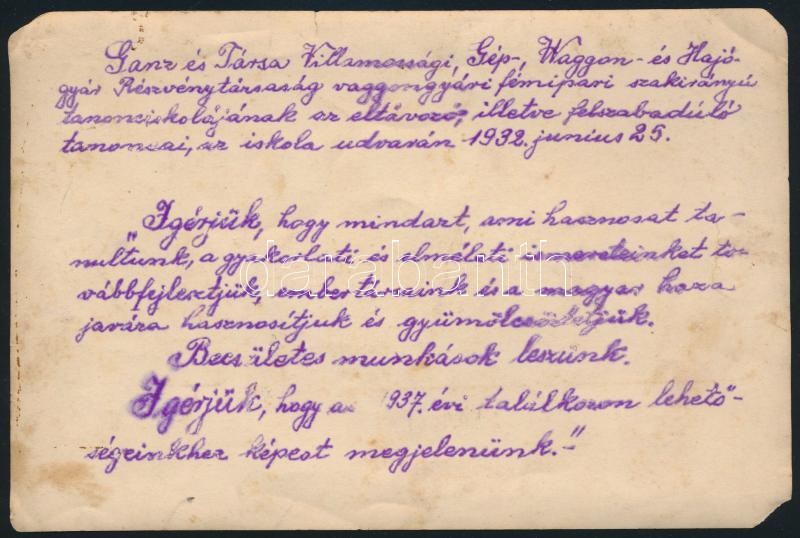 Ganz és Társa Villamossági, Gép-, Waggon- és Hajó-
gyár Részvénytársaság vaggongyári fémipari szakirányú
tanonciskolájának az eltávozó, illetve felszabadúló
tanoncai, az iskola udvarán 1932. junius 25.
"Igérjük, hogy mindazt, ami hasznosat ta-
nultunk, a gyakorlati és elméleti ismereteinket to-
vábbfejlesztjük, embertársaink és a magyar haza
javára hasznosítjuk és gyümölcsöztetjük.
Becsületes munkások leszünk.
Igérjük, hogy az 1937. évi találkozon lehető-
ségeinkhez képest megjelenünk."
darabanth